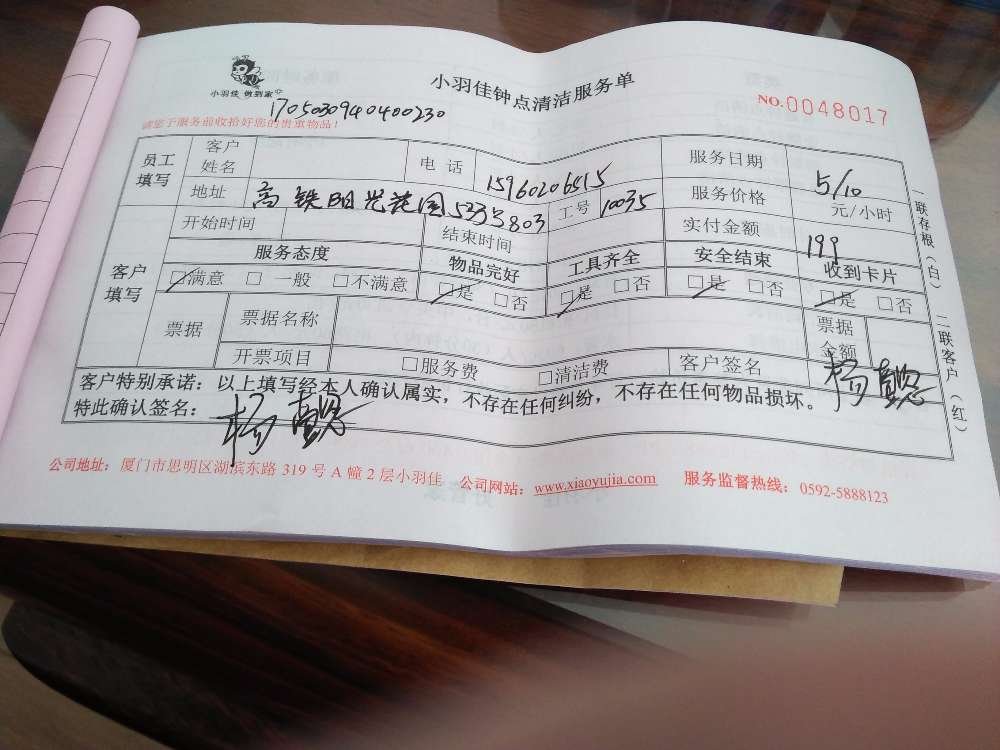 小羽佳 做到家
小羽佳钟点清洁服务单
NO.0048017
17050309404400230
请您于服务前收拾好您的贵重物品!
员工填写 客户姓名 电话 15960206515 服务日期 5/10
地址 高铁阳光花园 803 工号 10035 服务价格 元/小时
客户填写 开始时间 结束时间 实付金额 199
服务态度 物品完好 工具齐全 安全结束 收到卡片
☑满意 □一般 □不满意 ☑是 □否 ☑是 □否 ☑是 □否 ☑是 □否
票据 票据名称 票据金额
开票项目 □服务费 □清洁费 客户签名 杨
客户特别承诺:以上填写经本人确认属实,不存在任何纠纷,不存在任何物品损坏。
特此确认签名: 杨
公司地址:厦门市思明区湖滨东路 319 号 A 幢 2 层小羽佳 公司网站:www.xiaoyujia.com 服务监督热线:0592-5888123
一联存根(白) 二联客户(红)